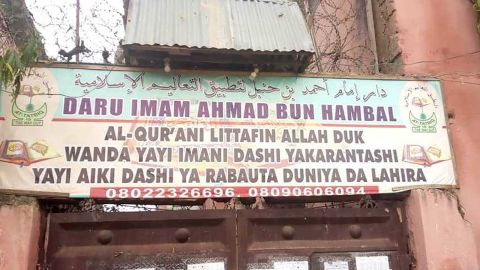 دار إمام أحمد بن حنبل لتطبيق التعاليم الإسلامية
DARU IMAM AHMAD BUN HAMBAL
AL-QUR'ANI LITTAFIN ALLAH DUK
WANDA YAYI IMANI DASHI YAKARANTASHI
YAYI AIKI DASHI YA RABAUTA DUNIYA DA LAHIRA
08022326696 08090606094